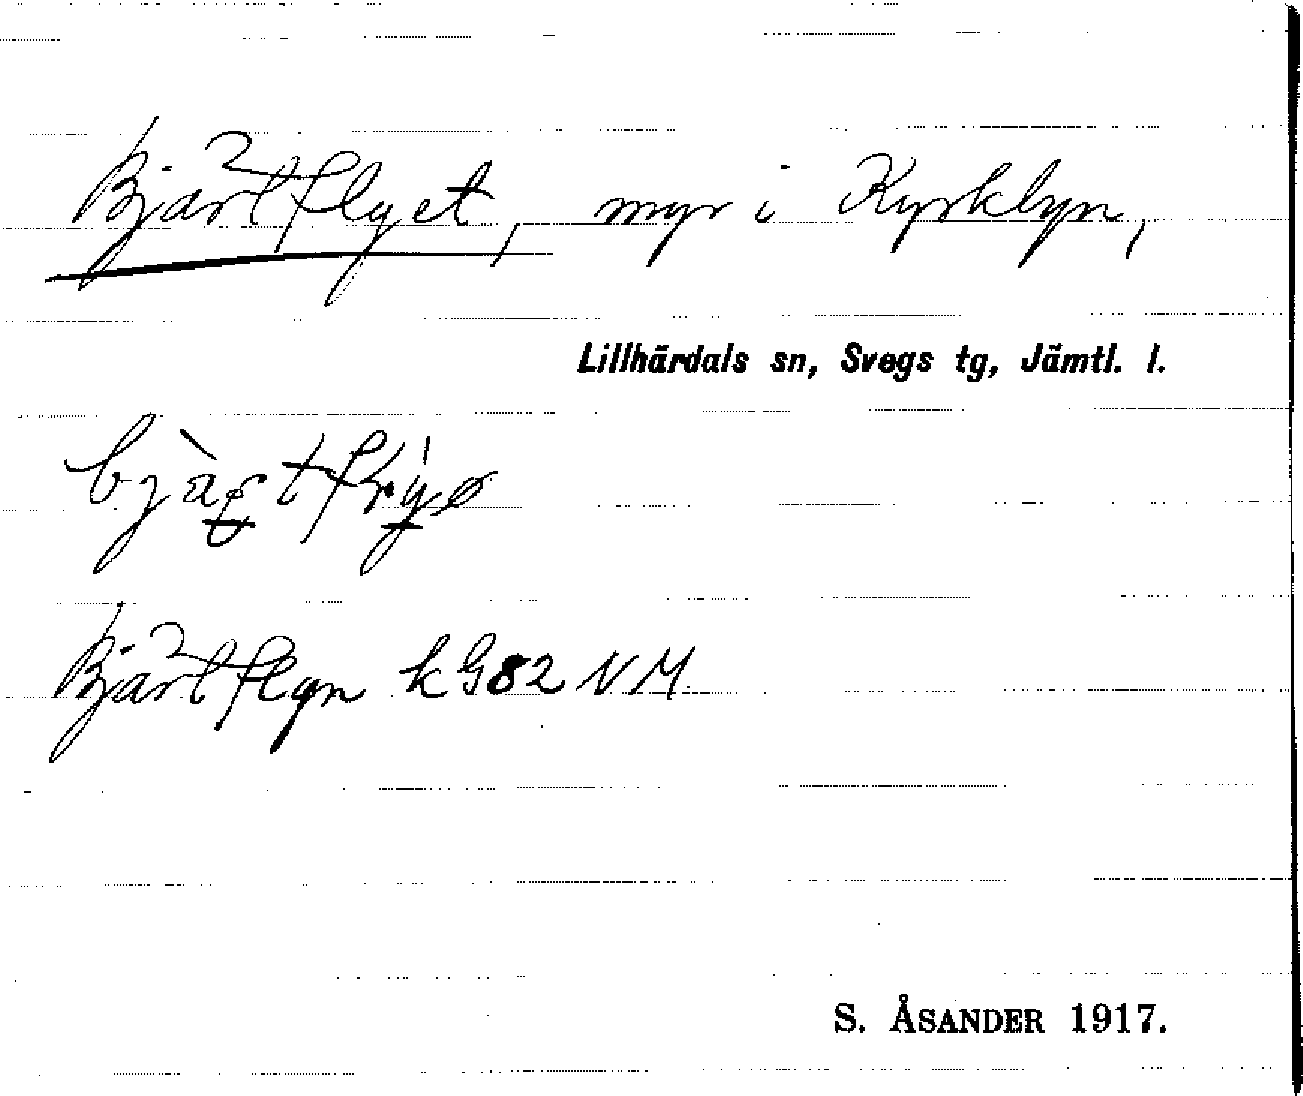 Bjärtflyet, myr i Kyrkbyn,
Lillhärdals sn, Svegs tg, Jämtl. l.
Bjärtflyn k G82 NM
S. ÅSANDER 1917.